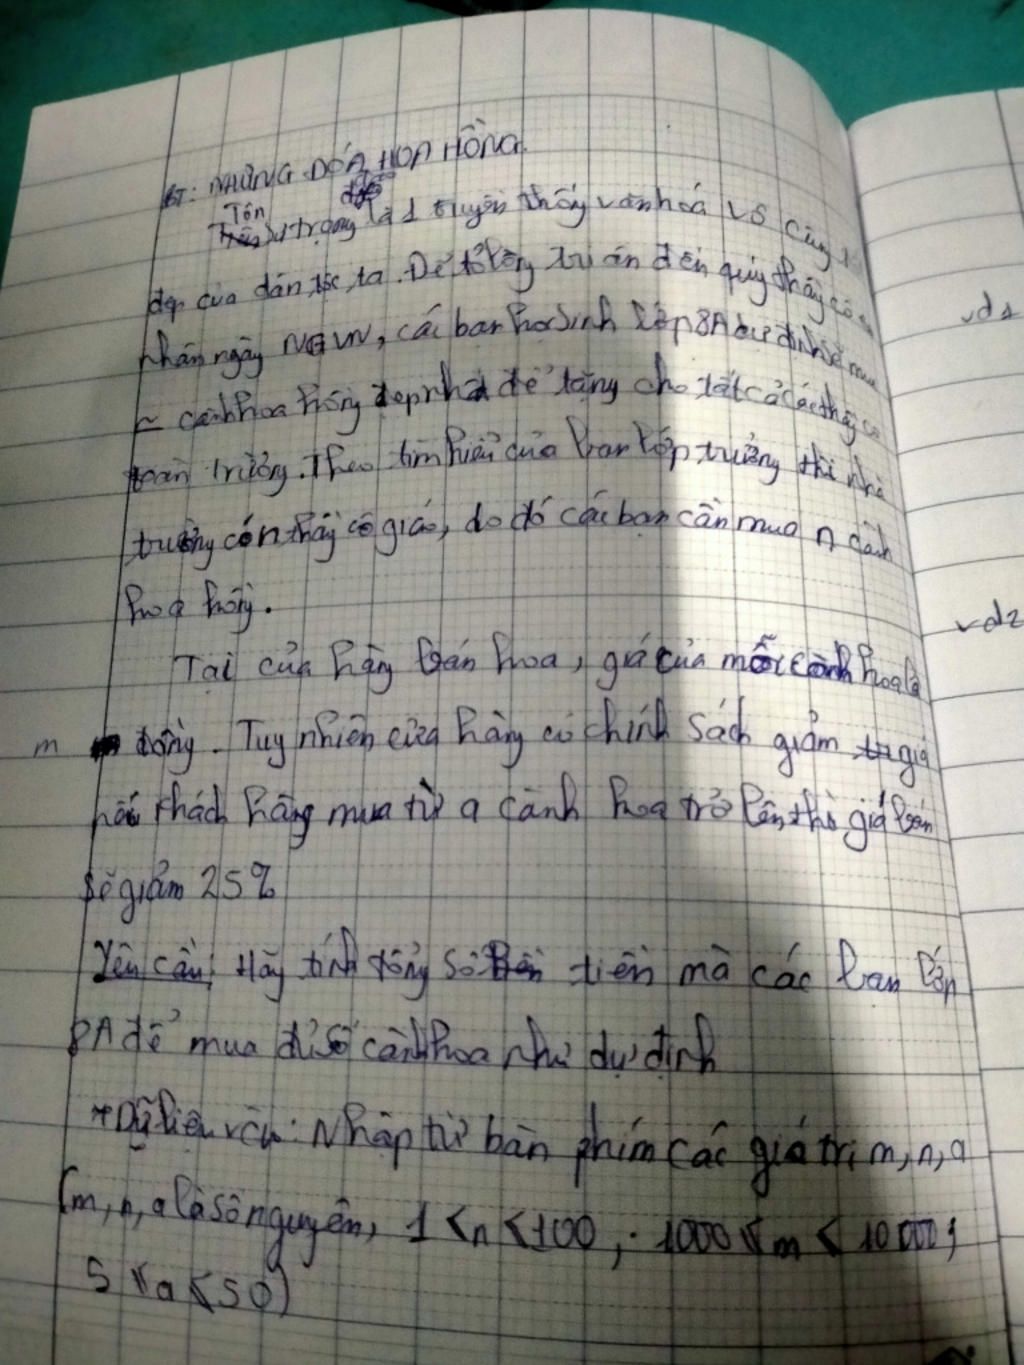 BT: NHỮNG DÓA HOA HỒNG
Tôn sư trọng đạo là 1 truyền thống văn hoá vô cùng
đẹp của dân tộc ta. Để tỏ lòng tri ân đến quý thầy cô
nhân ngày NGVN, các bạn học sinh lớp 8A dự định sẽ mua
~ cành hoa hồng đẹp nhất để tặng cho tất cả các thầy cô
toàn trường. Theo tìm hiểu của bạn lớp trưởng thì nhà
trường có n thầy cô giáo, do đó các bạn cần mua n cành
hoa hồng.
Tại cửa hàng bán hoa, giá của mỗi cành hoa là
m đồng. Tuy nhiên cửa hàng có chính sách giảm giá
nếu khách hàng mua từ a cành hoa trở lên thì giá bán
sẽ giảm 25%
Yêu cầu: Hãy tính tổng số tiền mà các bạn lớp
8A để mua đủ số cành hoa như dự định
+ Dữ liệu vào: Nhập từ bàn phím các giá trị m, n, a
(m, n, a là số nguyên, 1 < n < 100, 1000 ≤ m ≤ 10000;
5 ≤ a ≤ 50)
vd1
vd2